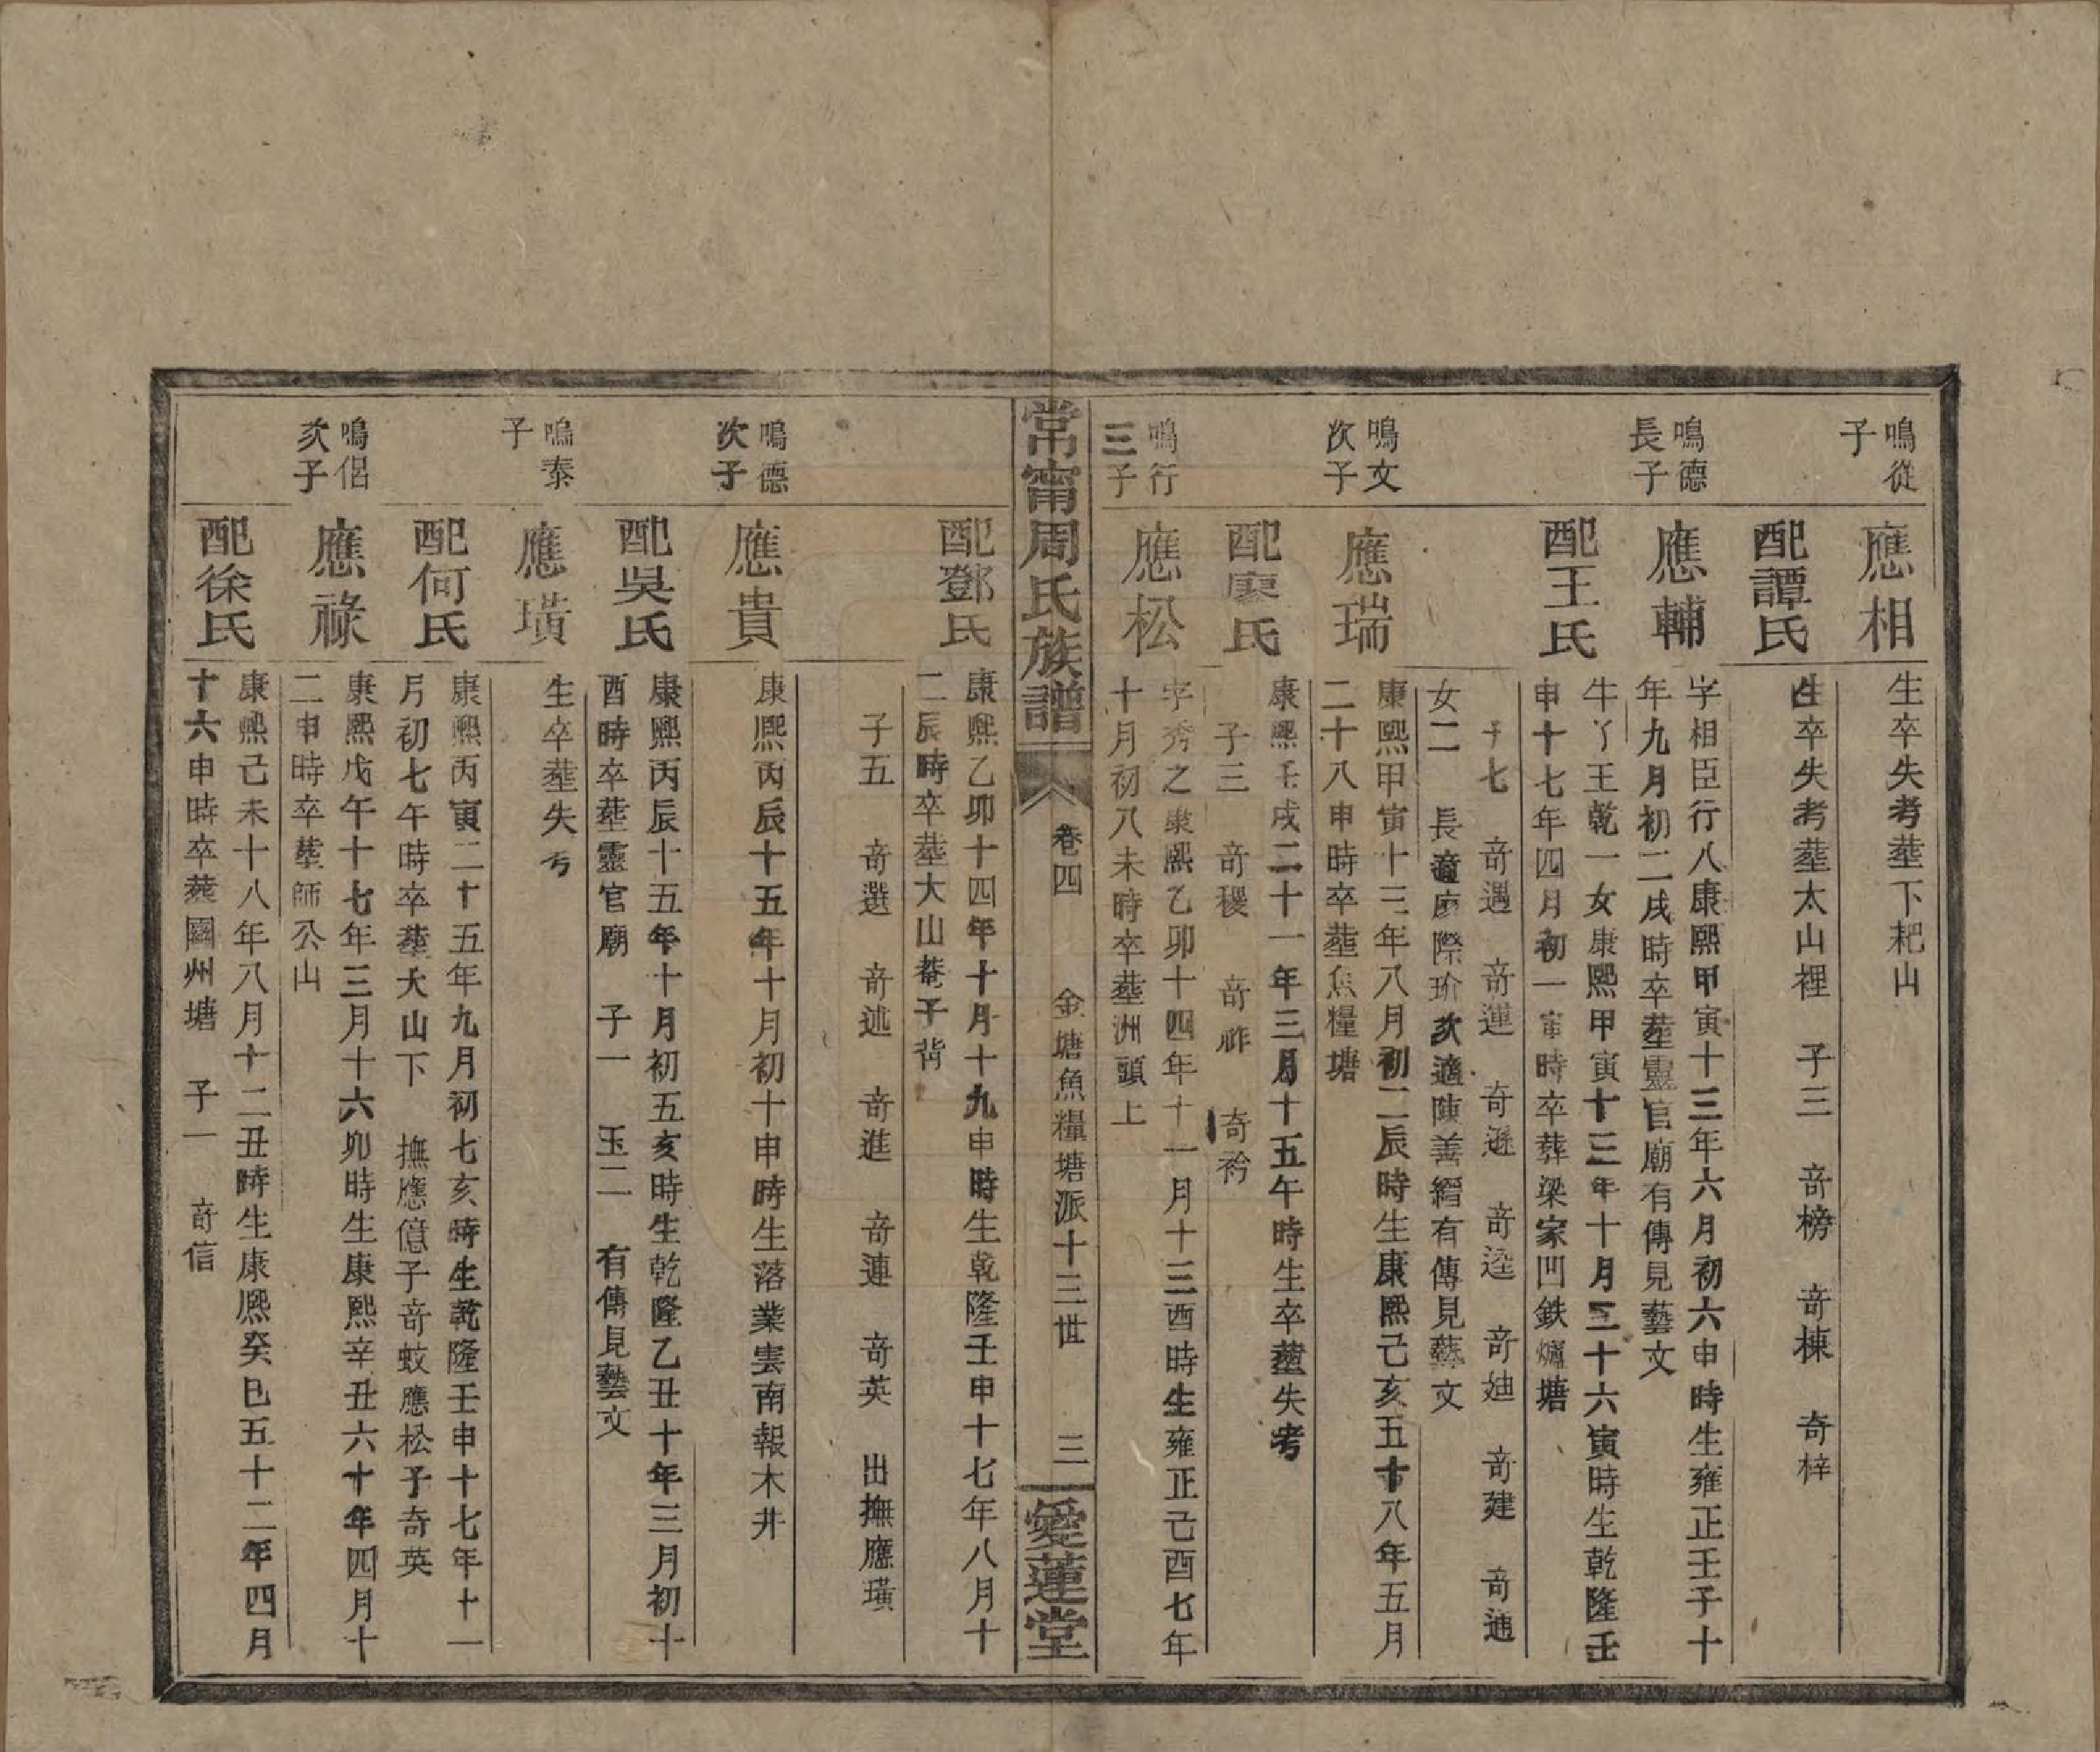 鳴從
子
應相
生卒失考塟下耙山
配譚氏
生卒失考塟太山裡 子三 竒榜 竒棟 奇梓
鳴德
長子
應輔
字相臣行八康熙甲寅十三年六月初六申時生雍正壬子十
年九月初二戌時卒塟靈官廟有傳見藝文
配王氏
牛丫王乾一女康熙甲寅十三年十月三十六寅時生乾隆壬
申十七年四月初一寅時卒葬梁家凹鉄爐塘
子七 竒遇 竒運 奇遜 竒逵 竒迪 竒建 竒通
女二 長適廖際玠次適陳善縉有傳見藝文
鳴文
次子
應瑞
康熙甲寅十三年八月初二辰時生康熙己亥五十八年五月
二十八申時卒塟焦糧塘
配廖氏
康熙壬戌二十一年三月十五午時生卒塟失考
子三 竒稷 竒祚 奇衿
鳴行
三子
應松
字秀之康熙乙卯十四年十一月十三酉時生雍正己酉七年
十月初八未時卒塟洲頭上
常甯周氏族譜 卷四 金塘魚糧塘派十三世 三 愛蓮堂
配鄧氏
康熙乙卯十四年十月十九申時生乾隆壬申十七年八月十
二辰時卒塟大山菴子背
子五 竒選 竒述 竒進 竒連 竒英 出撫應璜
鳴德
次子
應貴
康熙丙辰十五年十月初十申時生落業雲南報木井
配吳氏
康熙丙辰十五年十月初五亥時生乾隆乙丑十年三月初十
酉時卒塟靈官廟 子一 玉二 有傳見藝文
鳴泰
子
應璜
生卒塟失丂
配何氏
康熙丙寅二十五年九月初七亥時生乾隆壬申十七年十一
月初七午時卒塟大山下 撫應億子竒蛟應松子奇英
鳴侶
次子
應祿
康熙戊午十七年三月十六卯時生康熙辛丑六十年四月十
二申時卒塟師公山
配徐氏
康熙己未十八年八月十二丑時生康熙癸巳五十二年四月
十六申時卒葬圞州塘 子一 竒信